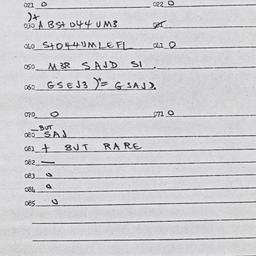 021 0 022 0
030 ABST 044 UM3
040 ST044UMLEFL 041 0
050 M3R SAJD SI .
060 GSEJ3 )= GSAJ3.
070 0 071 0
080 BUT SAJ
081 + BUT RARE
082 —
083 0
084 0
085 0